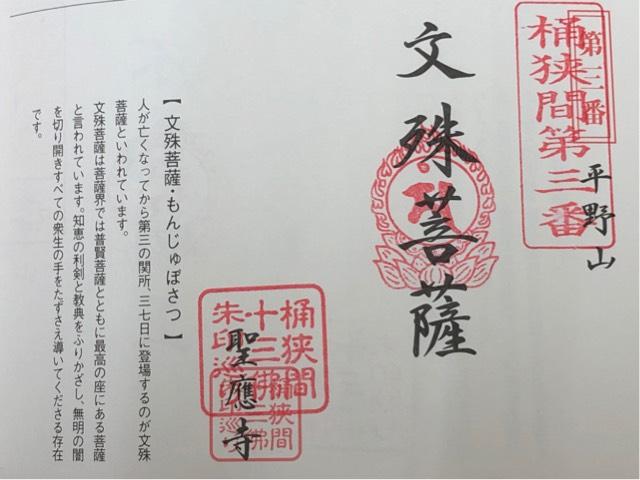 桶狭間第三番
第三番
平野山
文殊菩薩
桶狭間
十三佛
朱印巡り
聖應寺
【文殊菩薩・もんじゅぼさつ】
人が亡くなってから第三の関所、三七日に登場するのが文殊
菩薩といわれています。
文殊菩薩は菩薩界では普賢菩薩とともに最高の座にある菩薩
と言われています。知恵の利剣と教典をふりかざし、無明の闇
を切り開きすべての衆生の手をたずさえ導いてくださる存在
です。